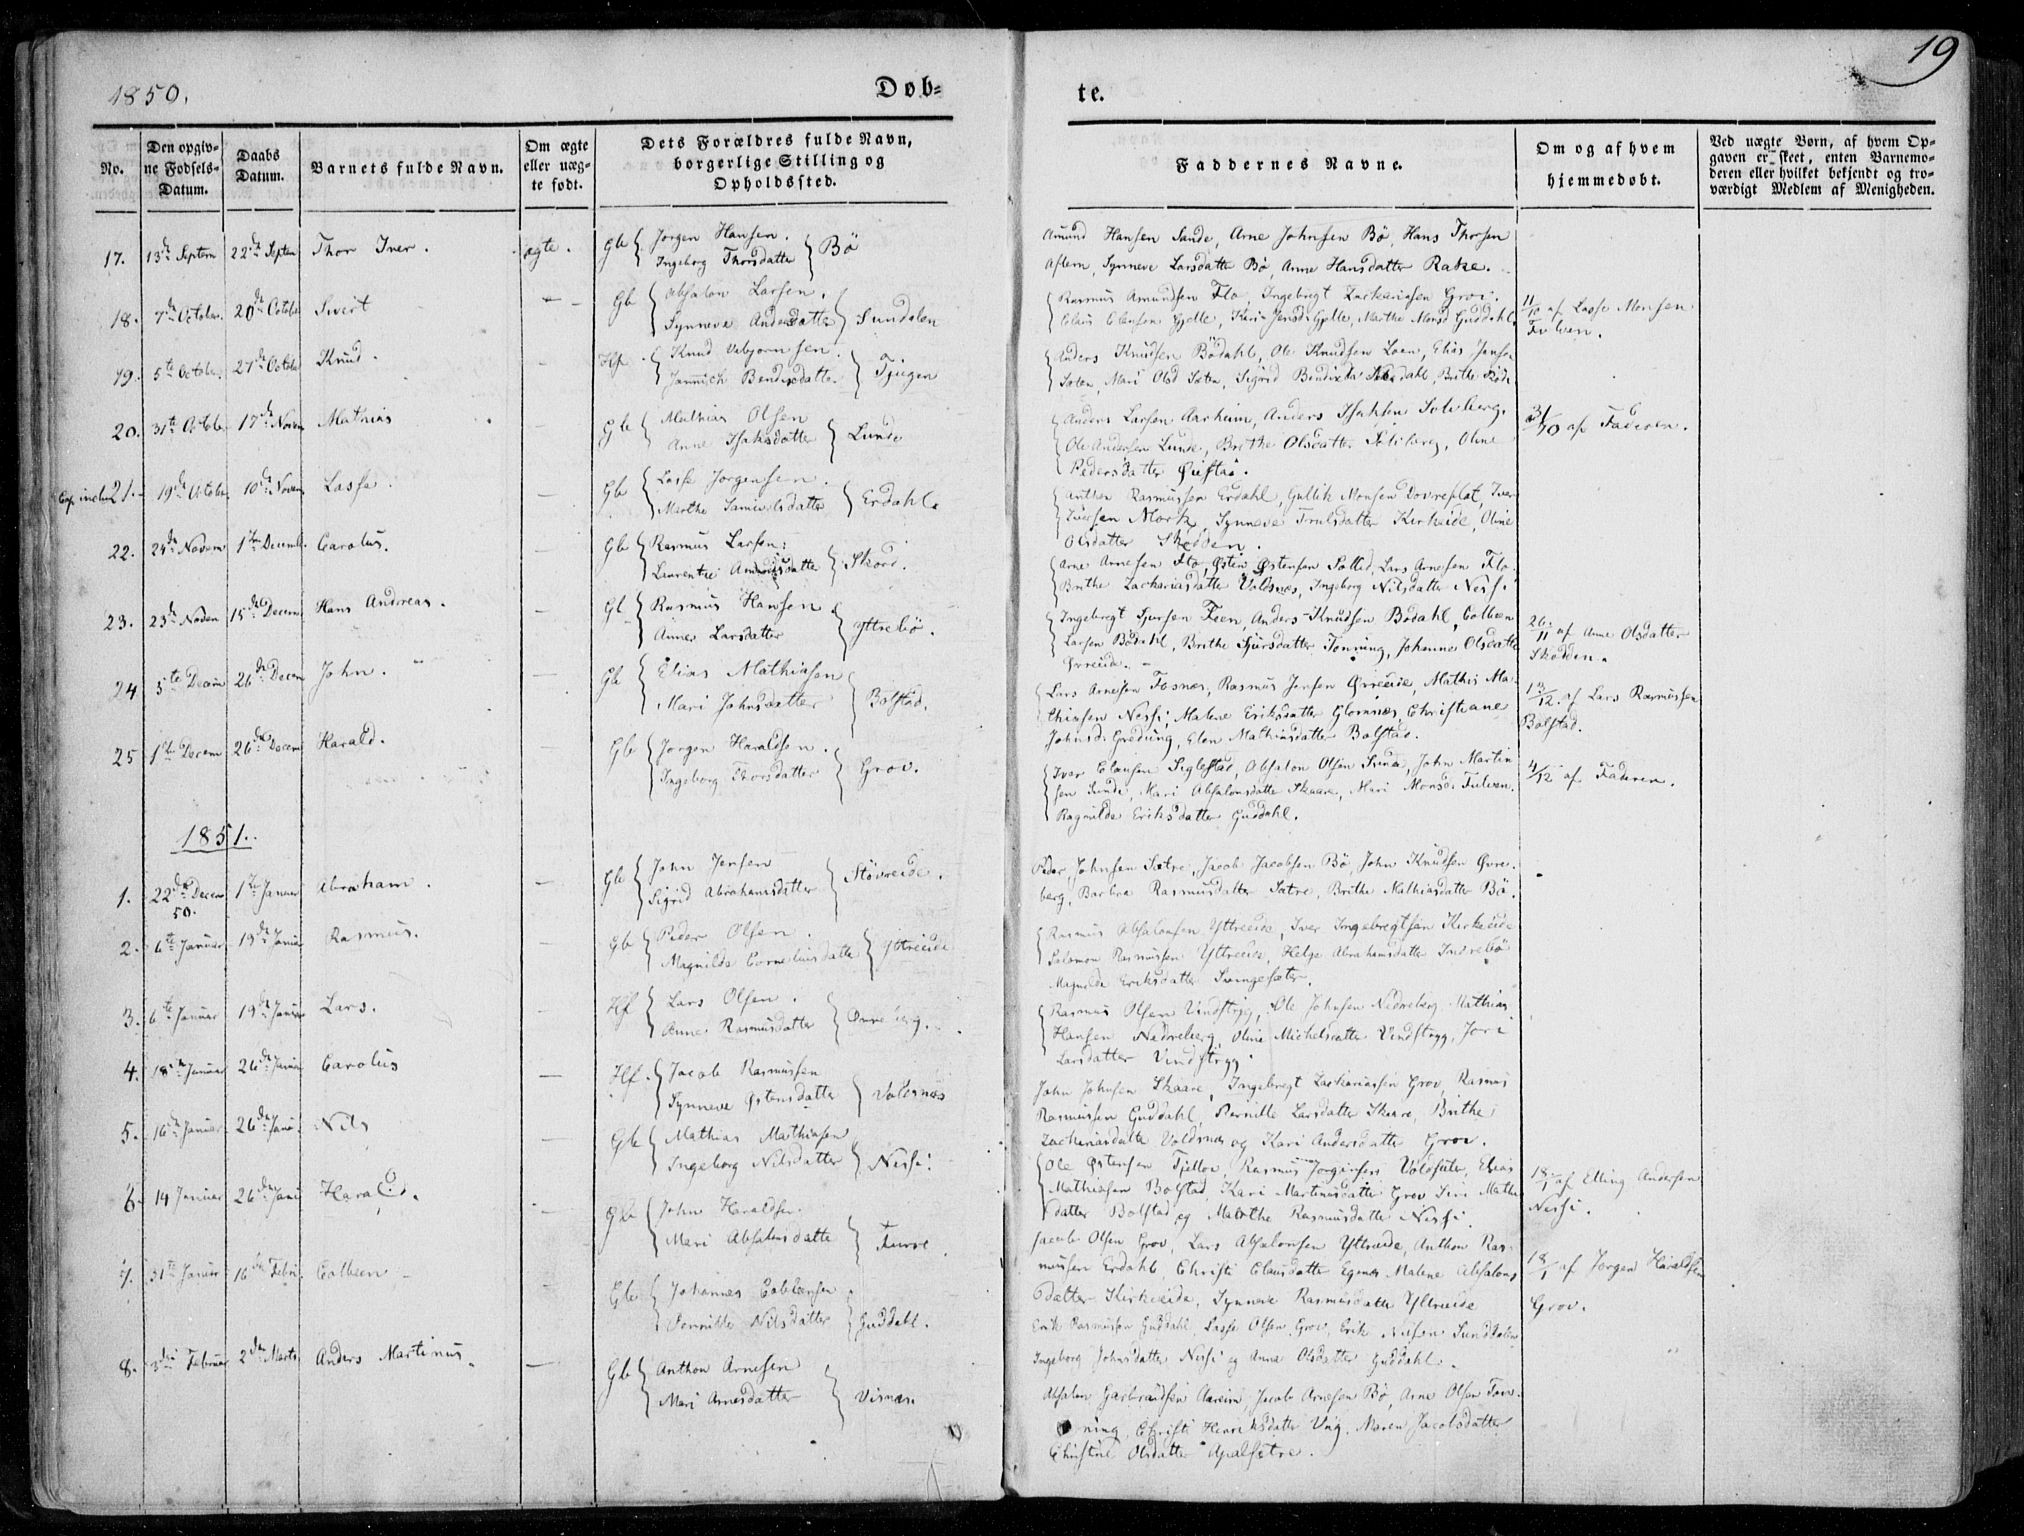 1850.
Døb=
te.
19
No.
Den opgiv-
ne Fødsels-
Datum.
Daabs
Datum.
Barnets fulde Navn.
Om ægte
eller uæg-
te født.
Dets Forældres fulde Navn,
borgerlige Stilling og
Opholdssted.
Faddernes Navne.
Om og af hvem
hjemmedøbt.
Ved uægte Børn, af hvem Op-
gaven er skeet, enten Barnemo-
deren eller hvilket bekjendt og tro-
værdigt Medlem af Menigheden.
17. 13de Septem 22de Septem Thor Iver. ægte. Gb Jørgen Hansen. Ingeborg Thorsdatter Bø
Amund Hansen Sunde, Arne Johnsen Bø, Hans Thorsen
Aflem, Synneve Larsdatter Bø, Anne Hansdatter Rake.
18. 7de October. 20de October Sivert — Gb Absalon Larsen. Synneve Andersdatter Sundalen
Rasmus Amundsen Flo, Ingebregt Zackariasen Grov.
Claus Clausen Gjelle, Kari Jensd. Gjelle, Marthe Monsd Guddahl.
11/10 af Lasse Monsen
Fulven.
19. 5te October. 27de October Knud. — Hf. Knud Vebjørnsen. Jannich Bendixdatter. Tjugen
Anders Knudsen Bødahl, Ole Knudsen Loen, Elias Jensen
Sæten, Mari Olsd Sæten, Sigrid Bendixdr Nesdahl, Brithe
20. 31te October 17de Novem Mathias — Gb Mathias Olsen Anne Isaksdatter Lunde
Anders Larsen Aarheim, Anders Isaksen Solvberg,
Ole Andersen Lunde, Brithe Olsdatter Solvberg, Oline
Pedersdatter
31/10 af Faderen.
21. 19de October 10de Novem Lasse. — Gb Lasse Jørgensen. Marthe Samuelsdatter Erdahl.
Anthon Rasmussen Erdahl, Gullik Monsen Dovreflat, Iver
Iversen Mork, Synneve Trulsdatter Kirkeide, Oline
Olsdatter Skodden.
22. 24de Novem 1te Decemb. Carolus. — Gb Rasmus Larsen. Laurentse Skaard.
Arne Arnesen Flo, Østen Østensen Sølted, Lars Arnesen Flo.
Brithe Zachariasdatter Voldsnes, Ingeborg Nilsdatter Nesse.
23. 23de Novem 15de Decem Hans Andreas. — Gb Rasmus Hansen Anne Larsdatter Yttrebø.
Ingebregt Sjursen Feen, Anders Knudsen Bødahl, Colben
Larsen Bødahl, Brithe Sjursdatter Tonning, Johanne Olsdatter
Øvreeide.
26/11 af Anne Olsdatter
Skodden.
24 5te Decem 26de Decem John. — Gb Elias Mathiasen Mari Johnsdatter Bolstad.
Lars Arnesen Fosnæs, Rasmus Jensen Øvreeide, Mathis Ma-
thiasen Nesse, Malene Eriksdatter Glomnæs, Christiane
Johnsd. Greding, Elen Mathiasdatter Bolstad.
13/12. af Lars Rasmussen
Bolstad.
25 1te Decem 26de Decem Harald. — Gb Jørgen Haraldsen. Ingeborg Thorsdatter Grov.
Iver Clausen Siglestad, Absalon Olsen Sunde, John Martin
sen Sunde, Mari Absalonsdatter Skaare, Mari Monsd. Fulven.
Ragnilde Eriksdatter Guddahl.
4/12 af Faderen.
1851.
1. 22de Decem 50. 1te Januar Abraham. — Gb John Jensen Sigrid Abrahamsdatter Støvreide.
Peder Johnsen Sætre, Jacob Jacobsen Bø, John Knudsen Øvre-
berg, Barbra Rasmusdatter Sætre, Brithe Mathiasdatter Bø.
2. 6te Januar 19de Januar Rasmus. — Gb Peder Olsen. Magnilde Corneliusdatter Yttreeide
Rasmus Absalonsen Yttreeide, Iver Ingebregtsen Kirkeide
Salomon Rasmussen Yttreeide, Helge Abrahamsdatter Indrebø
Magnilde Eriksdatter Svingesæter.
3. 6te Januar 19de Januar Lars. — Hf Lars Olsen. Anne Rasmusdatter Øvreberg.
Rasmus Olsen Vindstryg, Ole Johnsen Nedreberg, Mathias
Hansen Nedreberg, Oline Michelsdatter Vindstryg, Jori
Larsdatter Vindstryg.
4. 18de Januar 26de Januar Carolus — Hf. Jacob Rasmussen Synneve Østensdatter Voldsnæs
John Johnsen Skaare, Ingebregt Zackariassen Grov, Rasmus
Rasmussen Guddahl, Pernille Larsdatter Skaare, Brithe
Zackariasdatte Voldsnæs og Kari Andersdatte Grov.
5. 16de Januar 26de Janu. Nils — Gb Mathias Mathiasen Ingeborg Nilsdatter Nesse.
Ole Østensen Tjellov, Rasmus Jørginsen Voldsæter, Elias
Mathiasen Bolstad, Kari Martinusdatte Grov Siri Mathis
datter Bolstad og Marthe Rasmusdatte Nesse.
18/1 af Elling Andersen
Nesse.
6. 14 Januar 26de Janu Harald. — Gb John Haraldsen. Mari Absalonsdatte Furre.
Jacob Olsen Grov, Lars Absalonsen Yttreeide, Anthon Ras-
mussen Erdahl, Christi Clausdatter Egenes Malene Absalons
datter Kirkeeide, Synneve Rasmusdatte Yltreeide
18/1 af Jørgen Haraldsen
Grov.
7. 31te Januar 16de Febru. Colbeen — Gb Johannes Colbeensen Pernille Nilsdatter Guddahl.
Erik Rasmussen Guddahl, Lasse Olsen Grov, Erik Nilsen Sunddalen
Ingeborg Johnsdatter Nesse og Anne Olsdatter Guddahl.
8. 3die Februar 2den Marts Anders Martinus. — Gb Anthon Arnesen Mari Arnesdatter Visnæs
Absalon Garbrandsen Aareim, Jacob Arnesen Bø, Arne Olsen Ton-
ning, Christi Henriksdatter Ung, Maren Jacobsdatter
Christine Olsdatter Apalsetre.